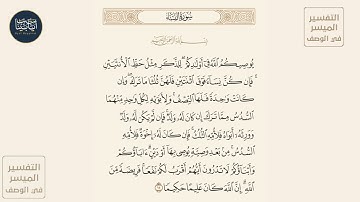 التفسير
الميسر
في الوصف
سورة النساء
يُوصِيكُمُ اللَّهُ فِي أَوْلَادِكُمْ لِلذَّكَرِ مِثْلُ حَظِّ الْأُنثَيَيْنِ
فَإِن كُنَّ نِسَاءً فَوْقَ اثْنَتَيْنِ فَلَهُنَّ ثُلُثَا مَا تَرَكَ وَإِن
كَانَتْ وَاحِدَةً فَلَهَا النِّصْفُ وَلِأَبَوَيْهِ لِكُلِّ وَاحِدٍ مِّنْهُمَا
السُّدُسُ مِمَّا تَرَكَ إِن كَانَ لَهُ وَلَدٌ فَإِن لَّمْ يَكُن لَّهُ وَلَدٌ
وَوَرِثَهُ أَبَوَاهُ فَلِأُمِّهِ الثُّلُثُ فَإِن كَانَ لَهُ إِخْوَةٌ فَلِأُمِّهِ
السُّدُسُ مِن بَعْدِ وَصِيَّةٍ يُوصِي بِهَا أَوْ دَيْنٍ ءَابَاؤُكُمْ
وَأَبْنَاؤُكُمْ لَا تَدْرُونَ أَيُّهُمْ أَقْرَبُ لَكُمْ نَفْعًا فَرِيضَةً مِّنَ
اللَّهِ إِنَّ اللَّهَ كَانَ عَلِيمًا حَكِيمًا
التفسير
الميسر
في الوصف